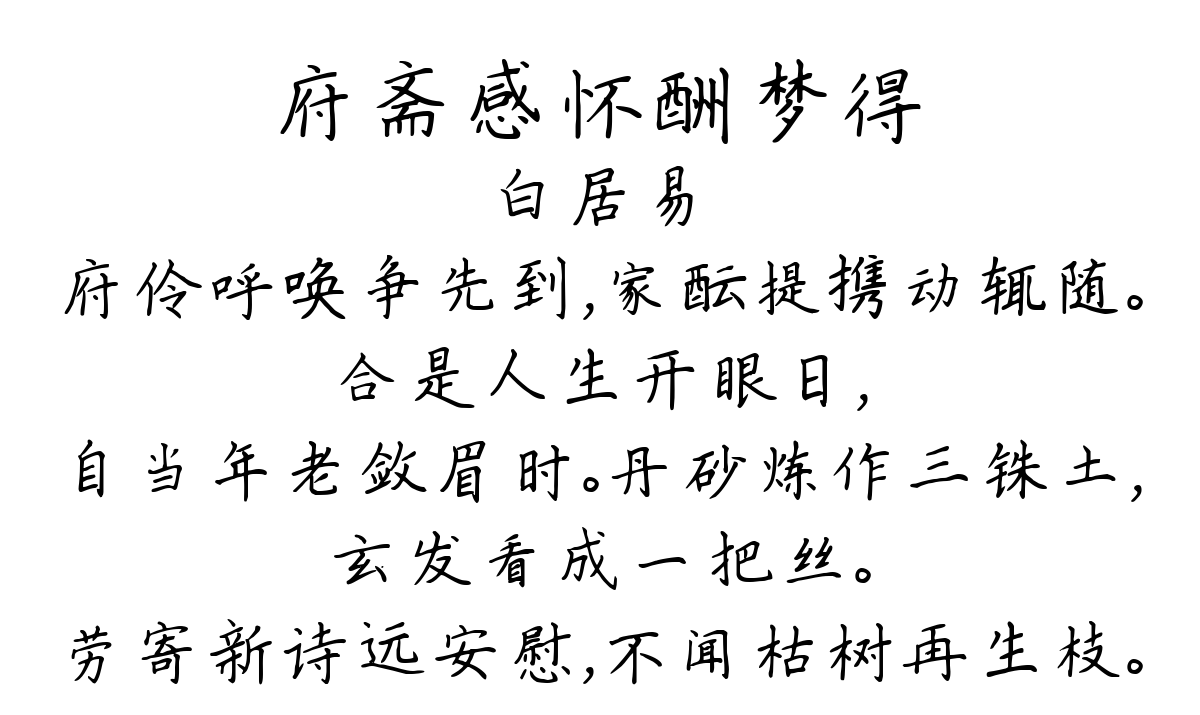 府斋感怀酬梦得
白居易
府伶呼唤争先到,家酝提携动辄随。
合是人生开眼日,
自当年老敛眉时。丹砂炼作三铢土,
玄发看成一把丝。
劳寄新诗远安慰,不闻枯树再生枝。